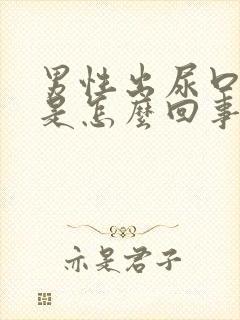 男性出尿口
是怎麼回事
亦是君子